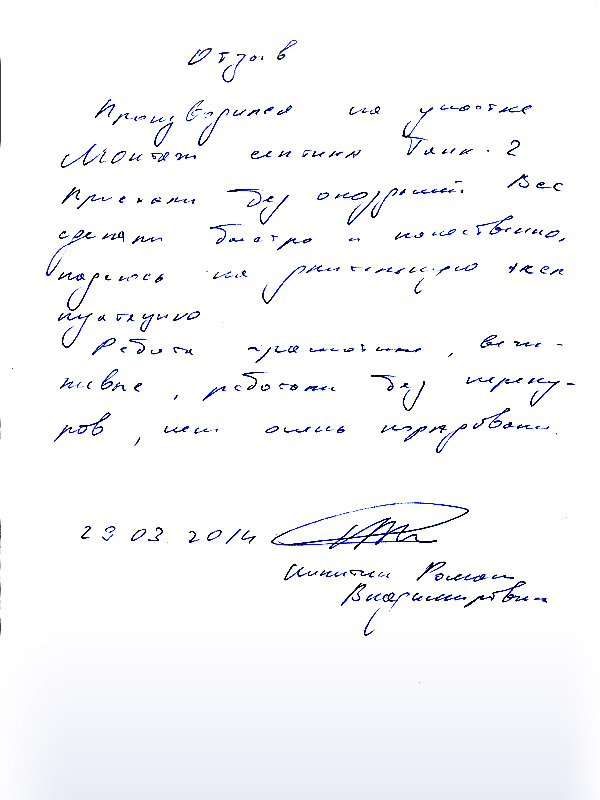 Отзыв
Производился на участке
Монтаж септика Танк-2
Приехали без опозданий Все
сделали быстро и качественно,
надеюсь на длительную экс
плуатацию
Ребята грамотные, вежли-
ливые, работали без переку-
ров, чем очень порадовали.
29 03. 2014
Никитин Роман
Владимирович